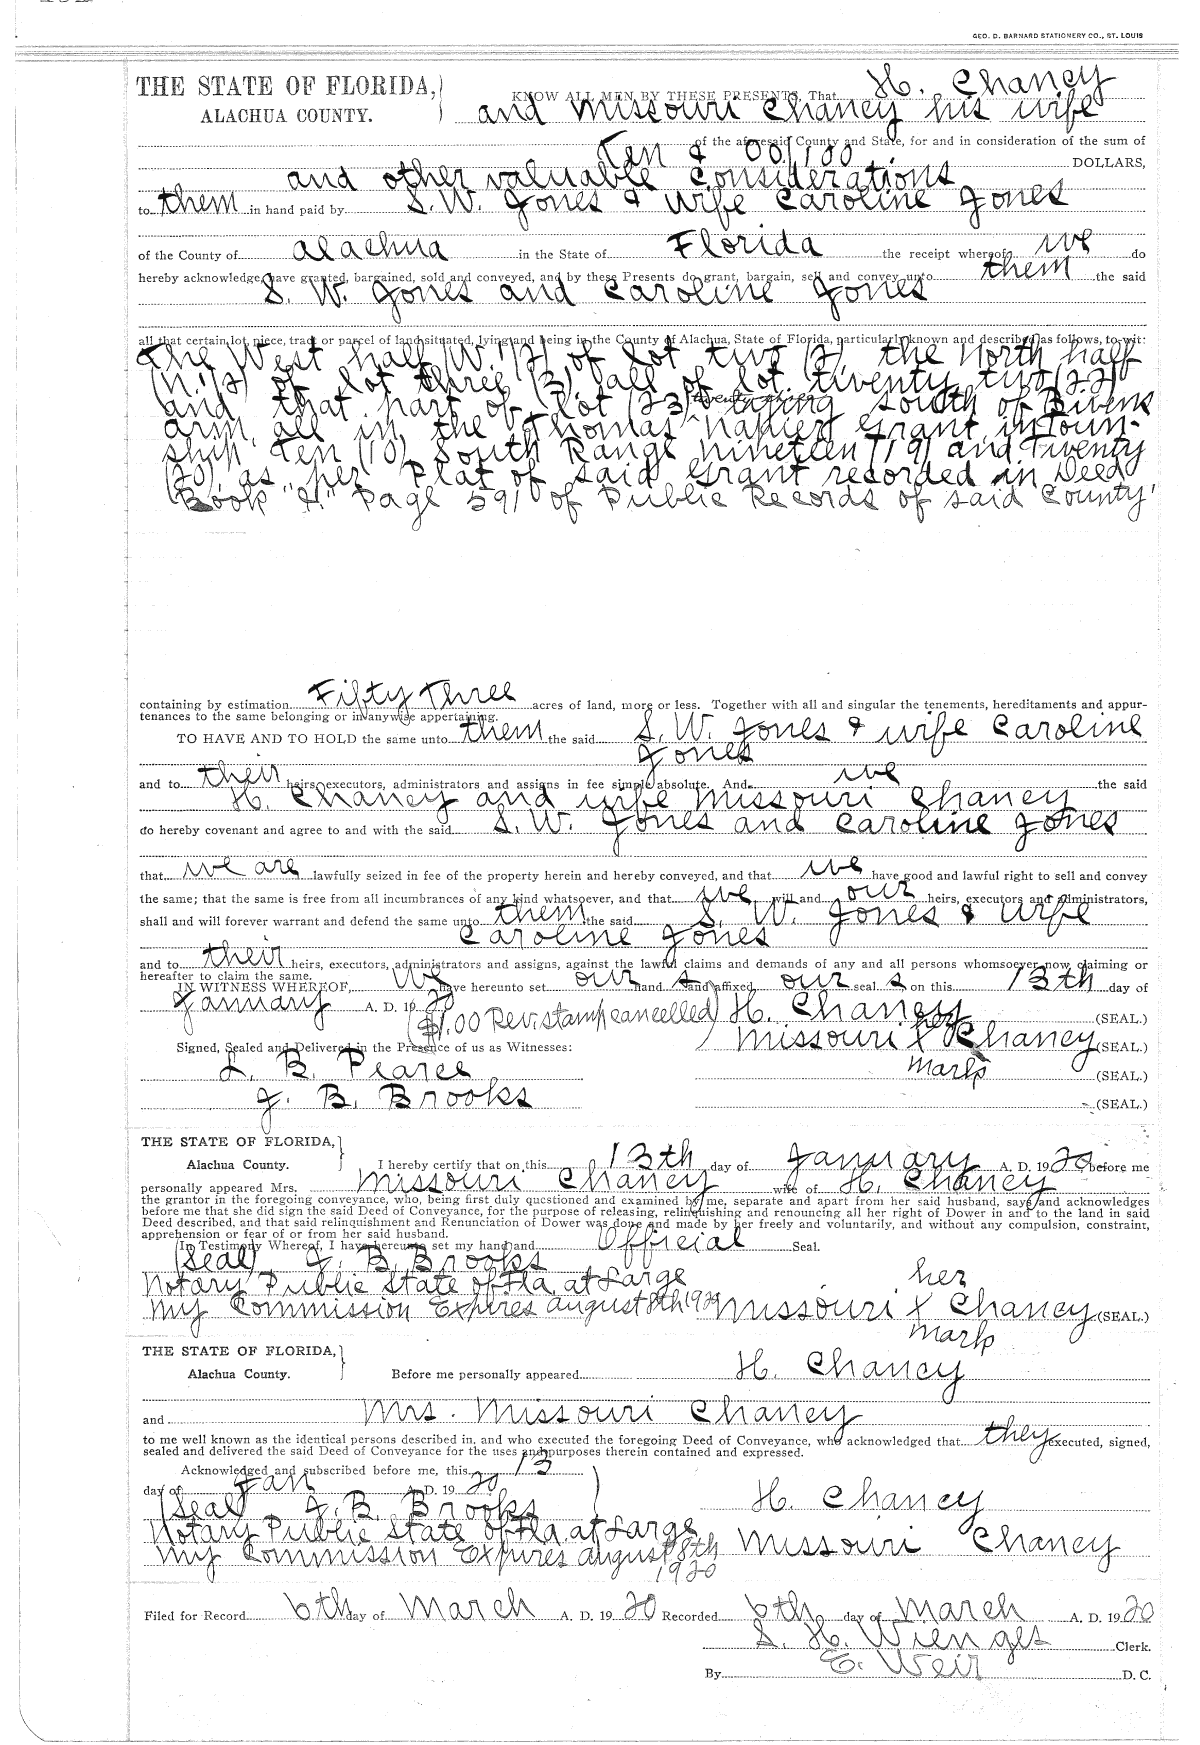 GEO. D. BARNARD STATIONERY CO., ST. LOUIS
THE STATE OF FLORIDA,
ALACHUA COUNTY.
KNOW ALL MEN BY THESE PRESENTS, That H. Chaney
and Missouri Chaney his wife
of the aforesaid County and State, for and in consideration of the sum of
Ten & 00/100 DOLLARS,
and other valuable considerations
to them in hand paid by S. W. Jones & wife Caroline Jones
of the County of Alachua in the State of Florida the receipt whereof we do
hereby acknowledge, have granted, bargained, sold and conveyed, and by these Presents do grant, bargain, sell and convey unto them the said
S. W. Jones and Caroline Jones
all that certain lot, piece, tract or parcel of land situated, lying and being in the County of Alachua, State of Florida, particularly known and described as follows, to-wit:
The West half (W.1/2) of lot two (2), the North half
(N.1/2) of lot three (3), all of lot twenty two (22)
and that part of lot (23) lying south of Bivens
arm, all in the Thomas Napier Grant, in Town-
ship Ten (10), South Range nineteen (19) and Twenty
(20), as per Plat of said Grant recorded in Deed
Book Page 591 of Public Records of said County
containing by estimation Fifty Three acres of land, more or less. Together with all and singular the tenements, hereditaments and appur-
tenances to the same belonging or in anywise appertaining.
TO HAVE AND TO HOLD the same unto them the said S. W. Jones & wife Caroline
Jones
and to their heirs, executors, administrators and assigns in fee simple absolute. And we the said
H. Chaney and wife Missouri Chaney
do hereby covenant and agree to and with the said S. W. Jones and Caroline Jones
that we are lawfully seized in fee of the property herein and hereby conveyed, and that we have good and lawful right to sell and convey
the same; that the same is free from all incumbrances of any kind whatsoever, and that we will and our heirs, executors and administrators,
shall and will forever warrant and defend the same unto them the said S. W. Jones & wife
Caroline Jones
and to their heirs, executors, administrators and assigns, against the lawful claims and demands of any and all persons whomsoever now claiming or
hereafter to claim the same.
IN WITNESS WHEREOF, We have hereunto set our hand s and affixed our seal s on this 13th day of
January A. D. 19 20
($1.00 Rev. stamp cancelled) H. Chaney (SEAL.)
her
Missouri X Chaney (SEAL.)
mark
Signed, Sealed and Delivered in the Presence of us as Witnesses:
L. B. Pearce (SEAL.)
J. B. Brooks (SEAL.)
THE STATE OF FLORIDA,
Alachua County. I hereby certify that on this 13th day of January A. D. 19 20, before me
personally appeared Mrs. Missouri Chaney wife of H. Chaney
the grantor in the foregoing conveyance, who, being first duly questioned and examined by me, separate and apart from her said husband, says and acknowledges
before me that she did sign the said Deed of Conveyance, for the purpose of releasing, relinquishing and renouncing all her right of Dower in and to the land in said
Deed described, and that said relinquishment and Renunciation of Dower was done and made by her freely and voluntarily, and without any compulsion, constraint,
apprehension or fear of or from her said husband.
In Testimony Whereof, I have hereunto set my hand and Official Seal.
(Seal) J. B. Brooks
Notary Public State of Fla. at Large
My Commission Expires August 8th 1920
her
Missouri X Chaney (SEAL.)
mark
THE STATE OF FLORIDA,
Alachua County. Before me personally appeared H. Chaney
and Mrs. Missouri Chaney
to me well known as the identical persons described in, and who executed the foregoing Deed of Conveyance, who acknowledged that they executed, signed,
sealed and delivered the said Deed of Conveyance for the uses and purposes therein contained and expressed.
Acknowledged and subscribed before me, this 13
day of Jan A. D. 19 20
(Seal) J. B. Brooks H. Chaney
Notary Public State of Fla. at Large
My Commission Expires August 8th Missouri Chaney
1920
Filed for Record 6th day of March A. D. 19 20 Recorded 6th day of March A. D. 19 20
S. H. Wienges Clerk.
By E. Weir D. C.